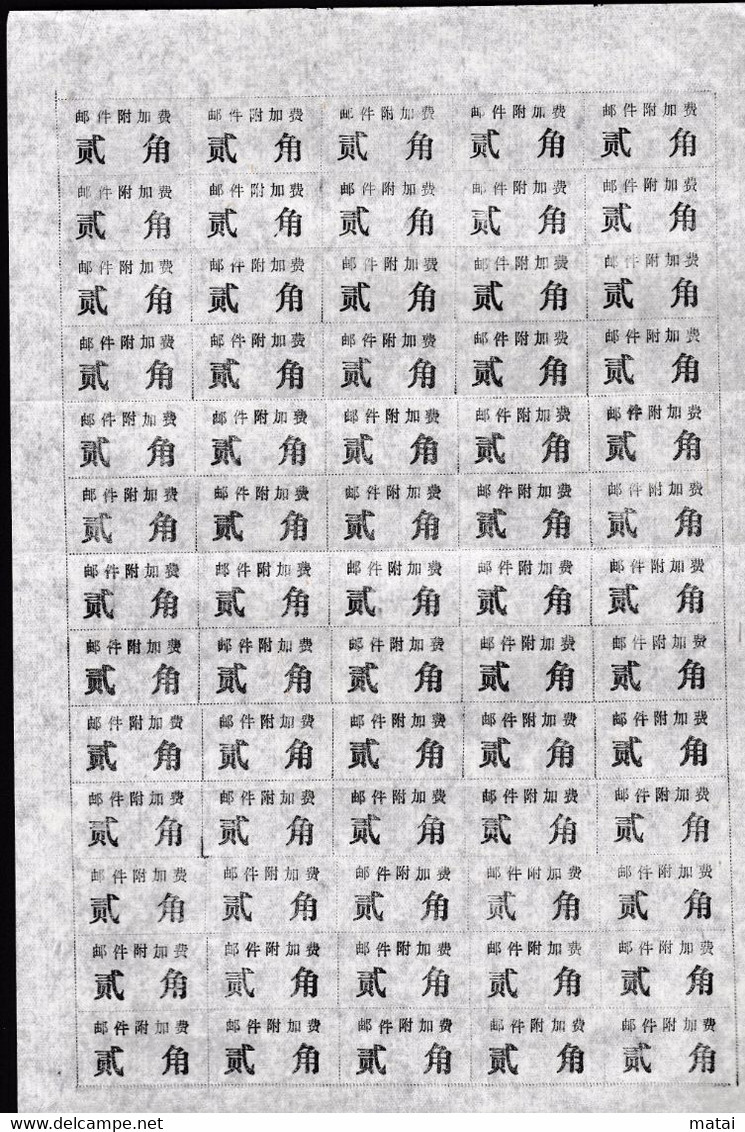 邮件附加费 邮件附加费 邮件附加费 邮件附加费 邮件附加费
贰角 贰角 贰角 贰角 贰角
邮件附加费 邮件附加费 邮件附加费 邮件附加费 邮件附加费
贰角 贰角 贰角 贰角 贰角
邮件附加费 邮件附加费 邮件附加费 邮件附加费 邮件附加费
贰角 贰角 贰角 贰角 贰角
邮件附加费 邮件附加费 邮件附加费 邮件附加费 邮件附加费
贰角 贰角 贰角 贰角 贰角
邮件附加费 邮件附加费 邮件附加费 邮件附加费 邮件附加费
贰角 贰角 贰角 贰角 贰角
邮件附加费 邮件附加费 邮件附加费 邮件附加费 邮件附加费
贰角 贰角 贰角 贰角 贰角
邮件附加费 邮件附加费 邮件附加费 邮件附加费 邮件附加费
贰角 贰角 贰角 贰角 贰角
邮件附加费 邮件附加费 邮件附加费 邮件附加费 邮件附加费
贰角 贰角 贰角 贰角 贰角
邮件附加费 邮件附加费 邮件附加费 邮件附加费 邮件附加费
贰角 贰角 贰角 贰角 贰角
邮件附加费 邮件附加费 邮件附加费 邮件附加费 邮件附加费
贰角 贰角 贰角 贰角 贰角
邮件附加费 邮件附加费 邮件附加费 邮件附加费 邮件附加费
贰角 贰角 贰角 贰角 贰角
邮件附加费 邮件附加费 邮件附加费 邮件附加费 邮件附加费
贰角 贰角 贰角 贰角 贰角
邮件附加费 邮件附加费 邮件附加费 邮件附加费 邮件附加费
贰角 贰角 贰角 贰角 贰角
delcampe.net matai